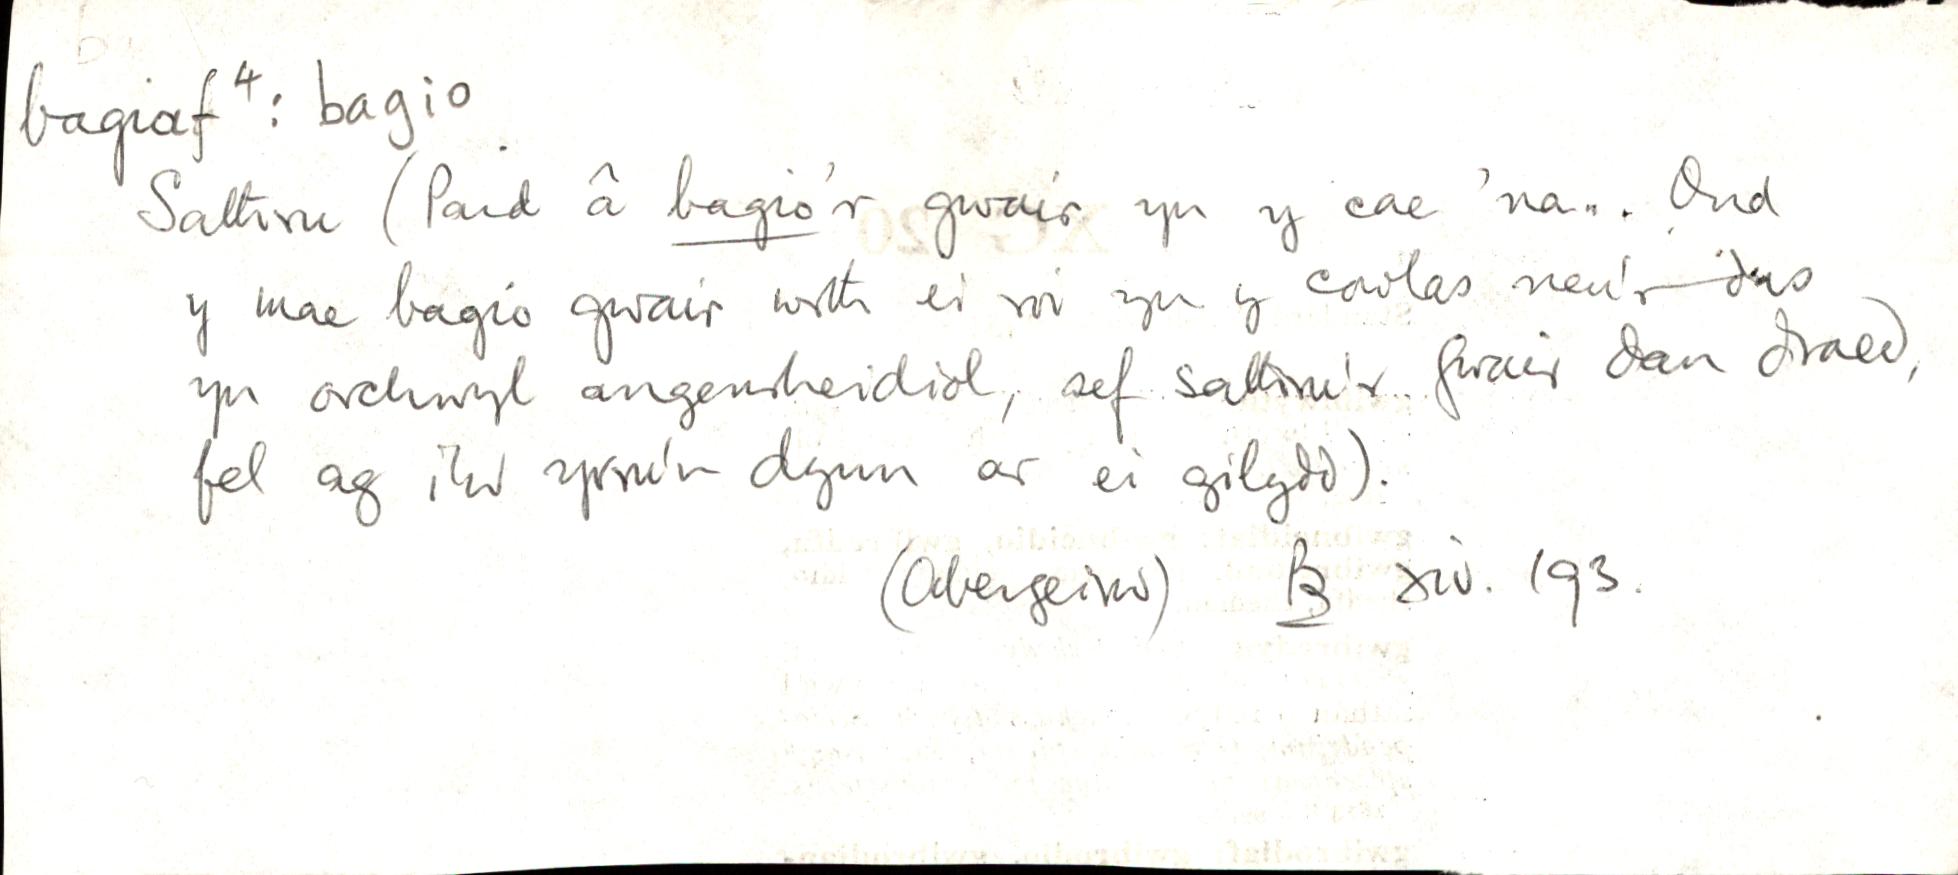 bagiaf⁴: bagio
Salthru (Paid â bagio'r gwair yn y cae 'na... Ond
y mae bagio gwair wrth ei roi yn y cowlas neu'r das
yn orchwyl angenrheidiol, sef salthru'r gwair dan draed,
fel ag iddo yrru'n dynn ar ei gilydd).
(Abergeirw) B xiv. 193.